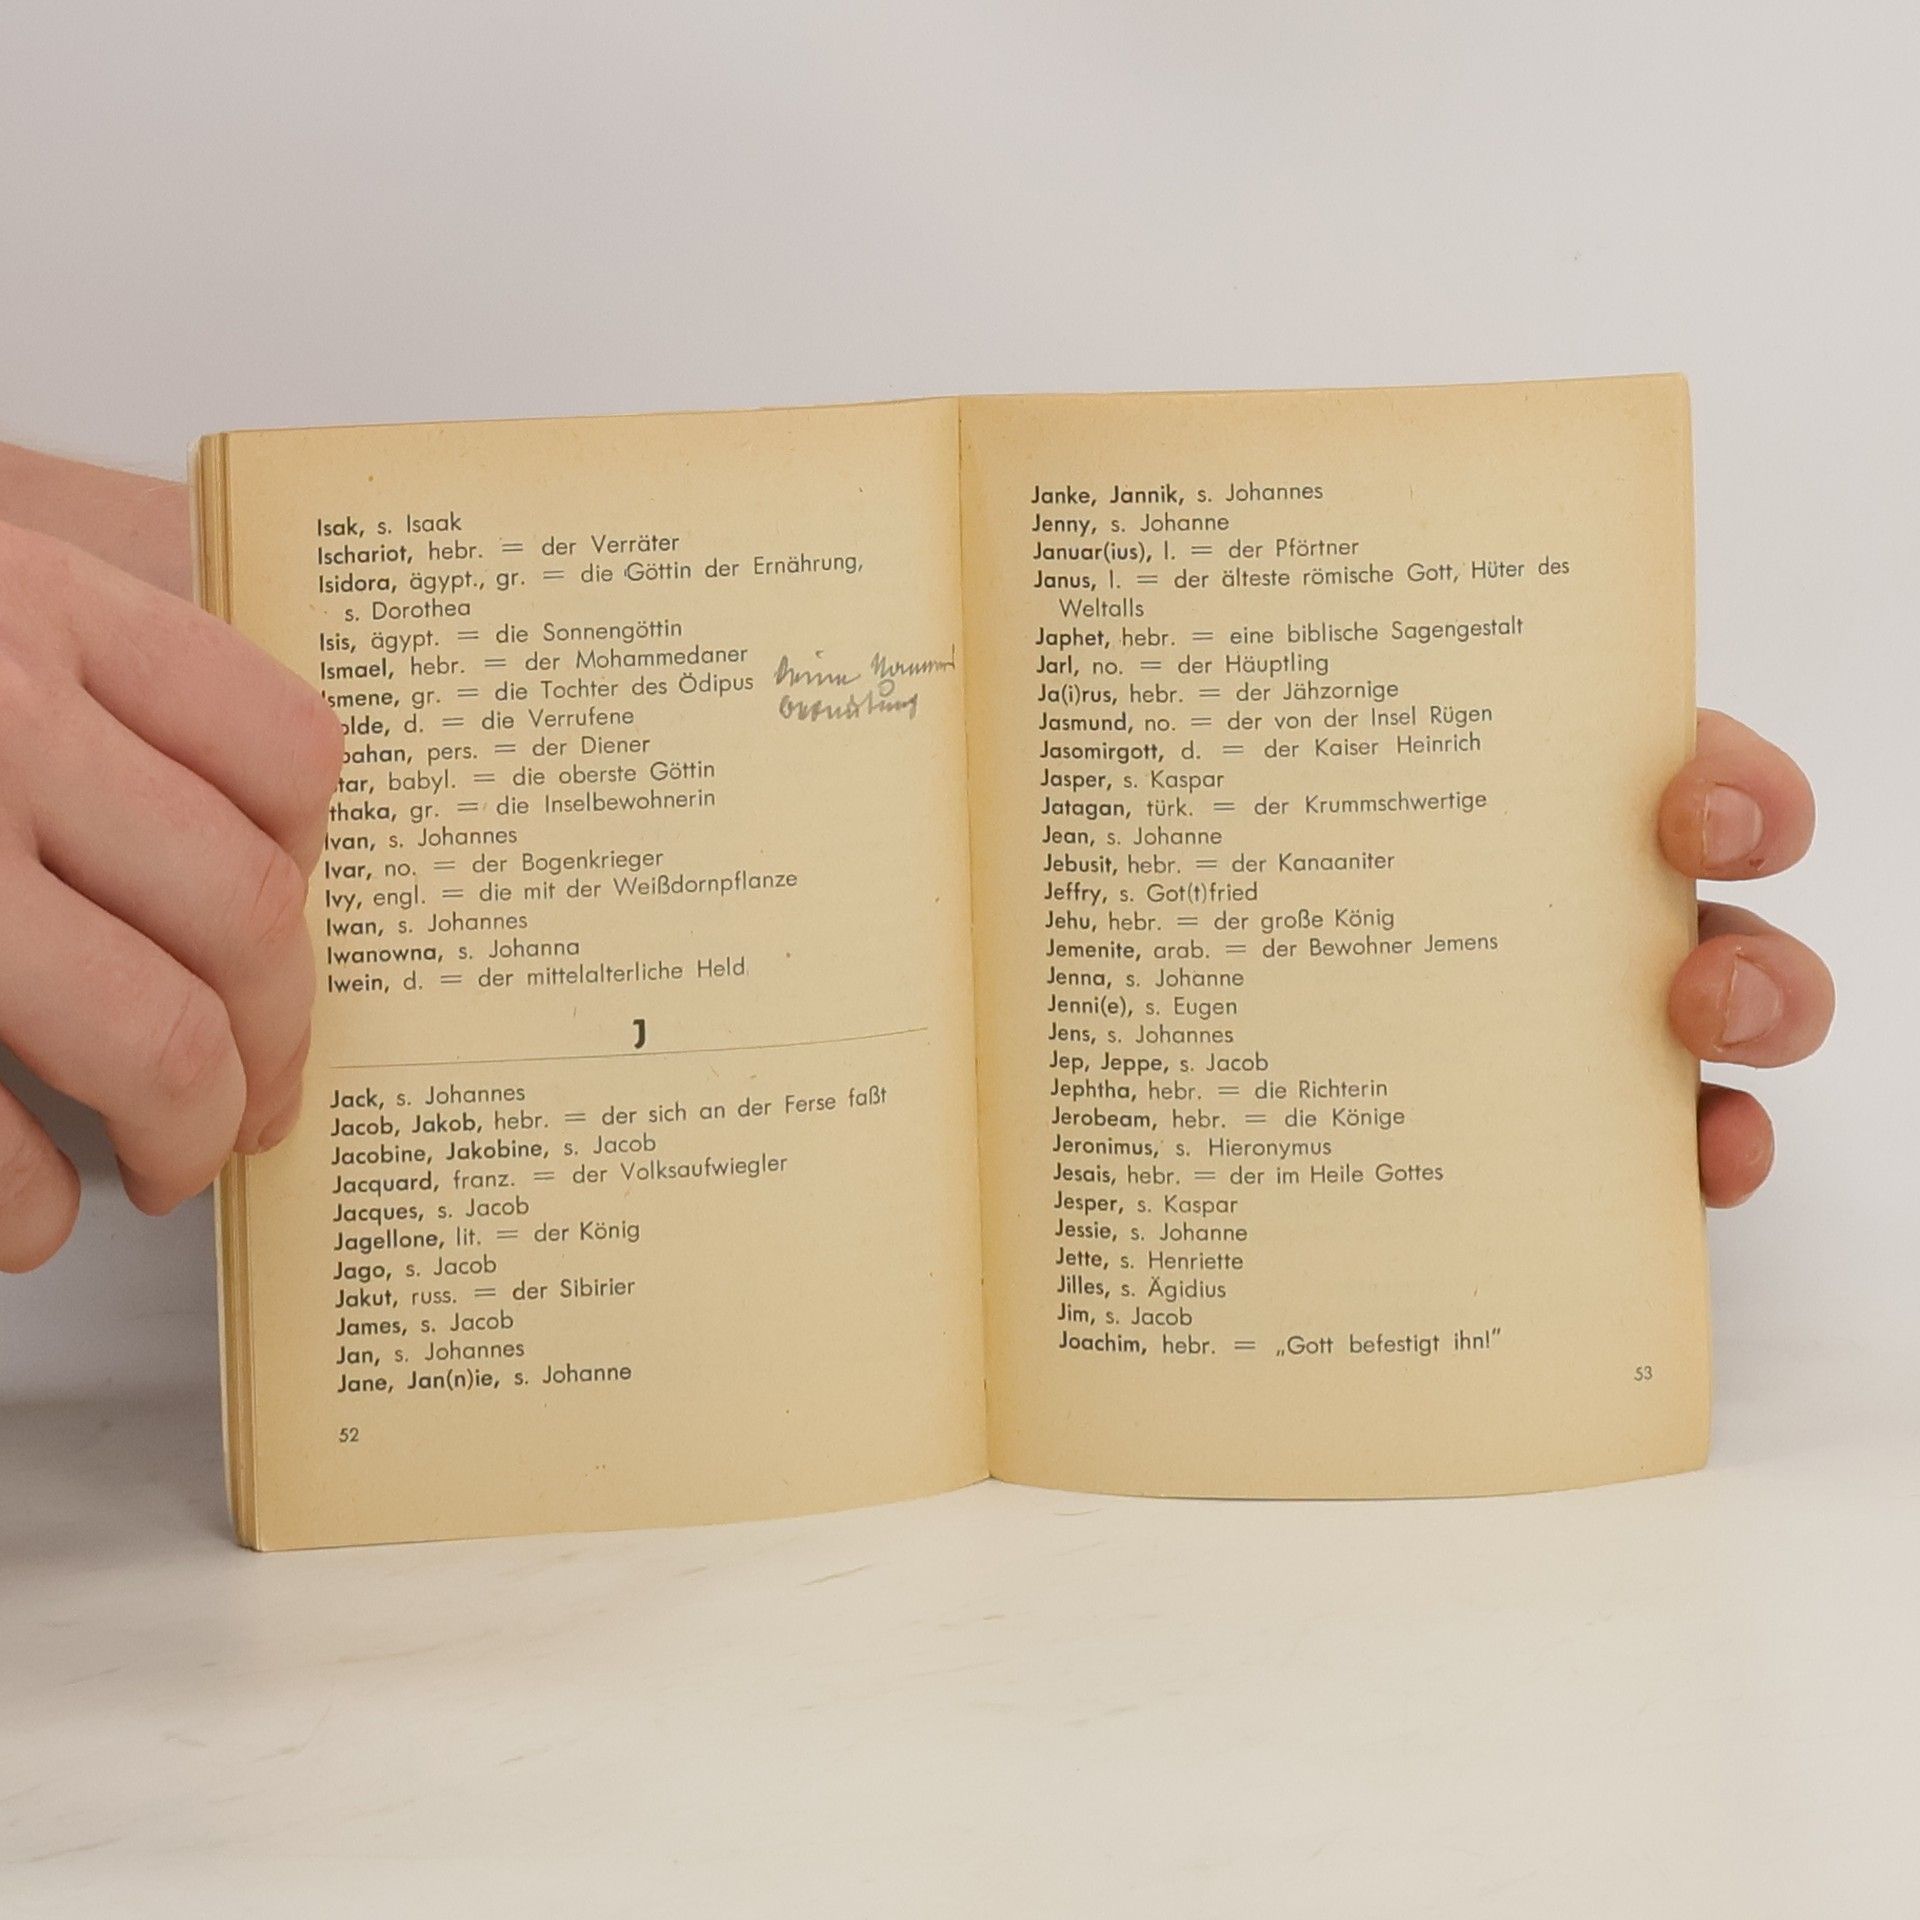 Isak, s. Isaak
Ischariot, hebr. = der Verräter
Isidora, ägypt., gr. = die Göttin der Ernährung,
s. Dorothea
Isis, ägypt. = die Sonnengöttin
Ismael, hebr. = der Mohammedaner
smene, gr. = die Tochter des Ödipus
olde, d. = die Verrufene
pahan, pers. = der Diener
tar, babyl. = die oberste Göttin
thaka, gr. = die Inselbewohnerin
Ivan, s. Johannes
Ivar, no. = der Bogenkrieger
Ivy, engl. = die mit der Weißdornpflanze
Iwan, s. Johannes
Iwanowna, s. Johanna
Iwein, d. = der mittelalterliche Held
keine Namens
bedeutung
J
Jack, s. Johannes
Jacob, Jakob, hebr. = der sich an der Ferse faßt
Jacobine, Jakobine, s. Jacob
Jacquard, franz. = der Volksaufwiegler
Jacques, s. Jacob
Jagellone, lit. = der König
Jago, s. Jacob
Jakut, russ. = der Sibirier
James, s. Jacob
Jan, s. Johannes
Jane, Jan(n)ie, s. Johanne
52
Janke, Jannik, s. Johannes
Jenny, s. Johanne
Januar(ius), l. = der Pförtner
Janus, l. = der älteste römische Gott, Hüter des
Weltalls
Japhet, hebr. = eine biblische Sagengestalt
Jarl, no. = der Häuptling
Ja(i)rus, hebr. = der Jähzornige
Jasmund, no. = der von der Insel Rügen
Jasomirgott, d. = der Kaiser Heinrich
Jasper, s. Kaspar
Jatagan, türk. = der Krummschwertige
Jean, s. Johanne
Jebusit, hebr. = der Kanaaniter
Jeffry, s. Got(t)fried
Jehu, hebr. = der große König
Jemenite, arab. = der Bewohner Jemens
Jenna, s. Johanne
Jenni(e), s. Eugen
Jens, s. Johannes
Jep, Jeppe, s. Jacob
Jephtha, hebr. = die Richterin
Jerobeam, hebr. = die Könige
Jeronimus, s. Hieronymus
Jesais, hebr. = der im Heile Gottes
Jesper, s. Kaspar
Jessie, s. Johanne
Jette, s. Henriette
Jilles, s. Ägidius
Jim, s. Jacob
Joachim, hebr. = „Gott befestigt ihn!"
53